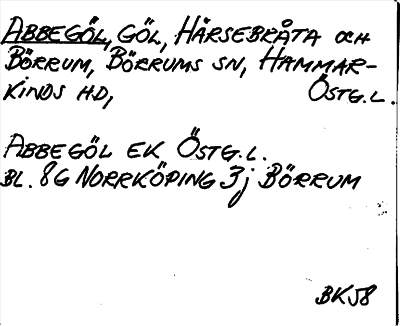 ABBEGÖL, GÖL, HÅRSEBRÅTA OCH
BÖRRUM, BÖRRUMS SN, HAMMAR-
KINDS HD, ÖSTG.L.
ABBEGÖL EK ÖSTG.L.
BL. 8G NORRKÖPING 3j BÖRRUM
BK58